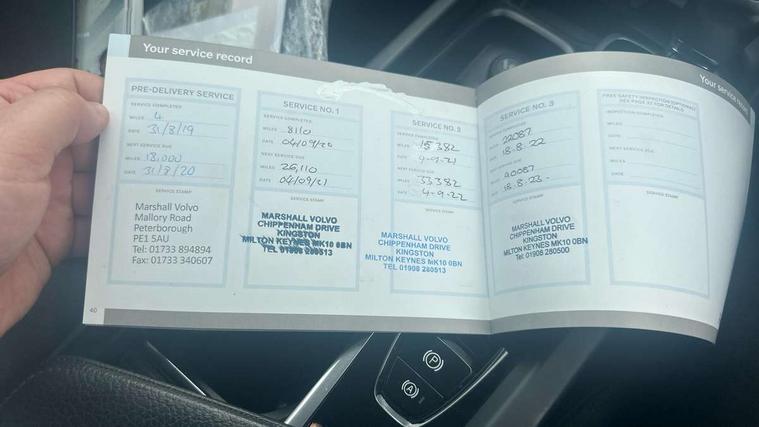 Your service record
PRE-DELIVERY SERVICE
SERVICE COMPLETED
MILES 4
DATE 31/8/19
NEXT SERVICE DUE
MILES 18,000
DATE 31/8/20
SERVICE STAMP
Marshall Volvo
Mallory Road
Peterborough
PE1 5AU
Tel: 01733 894894
Fax: 01733 340607
40
SERVICE NO. 1
SERVICE COMPLETED
MILES 8110
DATE 04/09/20
NEXT SERVICE DUE
MILES 26,110
DATE 04/09/21
SERVICE STAMP
MARSHALL VOLVO
CHIPPENHAM DRIVE
KINGSTON
MILTON KEYNES MK10 0BN
TEL 01908 280513
SERVICE NO. 2
SERVICE COMPLETED
MILES 15382
DATE 4-9-21
NEXT SERVICE DUE
MILES 33382
DATE 4-9-22
SERVICE STAMP
MARSHALL VOLVO
CHIPPENHAM DRIVE
KINGSTON
MILTON KEYNES MK10 0BN
TEL 01908 280513
Your service record
SERVICE NO. 3
SERVICE COMPLETED
MILES 22087
DATE 18.8.22
NEXT SERVICE DUE
MILES 40087
DATE 18.8.23
SERVICE STAMP
MARSHALL VOLVO
CHIPPENHAM DRIVE
KINGSTON
MILTON KEYNES MK10 0BN
Tel: 01908 280500
FREE SAFETY INSPECTION (OPTIONAL)
SEE PAGE 37 FOR DETAILS
INSPECTION COMPLETED
MILES
DATE
NEXT SERVICE DUE
MILES
DATE
SERVICE STAMP
P
A